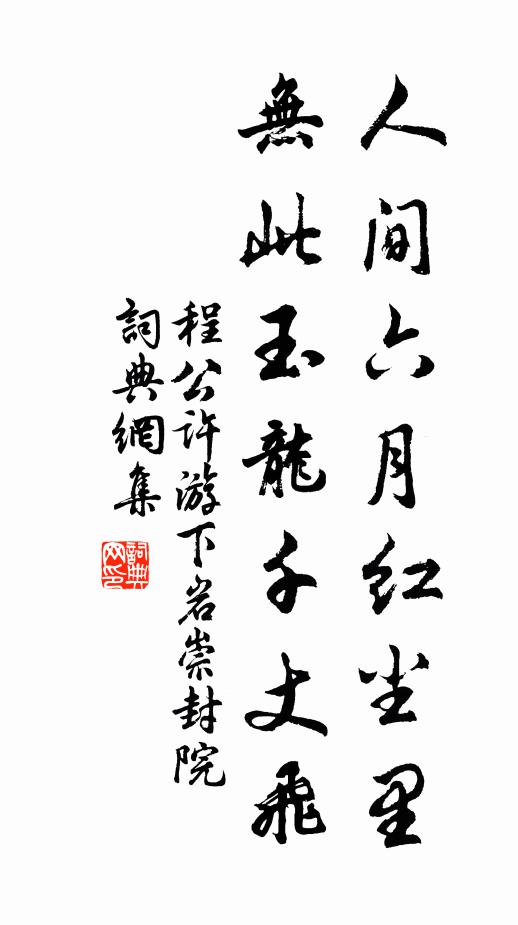 人间六月红尘里
無此玉龍千丈飛
程公许游下岩崇封院
詞典網集
詞典网印